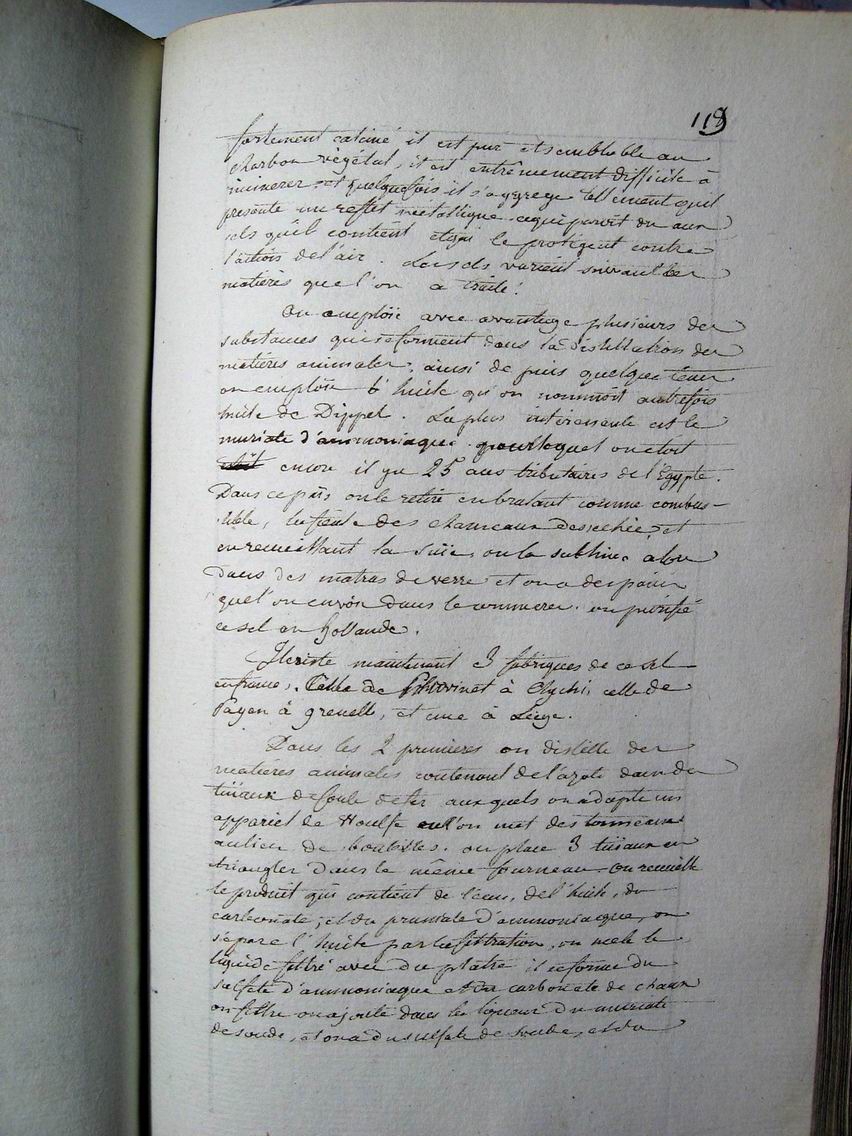 119
fortement calciné il est pur et semblable au
charbon végétal, il est extrêmement difficile à
incinerer et quelquefois il s'aggrege tellement qu'il
présente un reflet métallique. ce qui parait du aux
sels qu'il contient et qui le protègent contre
l'action de l'air. Les sels varient suivant les
matières que l'on a traité.
On emploie avec avantage plusieurs des
substances qui se forment dans la distillation des
matières animales, ainsi de puis quelque tems
on emploie l'huile qu'on nommoit autrefois
huile de Dippel. La plus intéressante est le
muriate d'ammoniaque. pour lequel on étoit
encore il y a 25 ans tributaires de l'Egypte.
Dans ce païs on le retire en brulant comme combus-
tible, la fiente des chameaux desséchée, et
en recueillant la suie, on la sublime alors
dans des matras de verre et on a des pains
que l'on envoie dans le commerce. on purifie
ce sel en Hollande.
Il existe maintenant 3 fabriques de ce sel
en france. Celle de à Clychi, celle de
Payen à grenelle, et une à Liège.
Dans les 2 premières on distille des
matières animales contenant de l'azote dans des
tuïaux de fonte de fer aux quels on adapte un
appariel de Woulfe où l'on met des tonneaux
au lieu de bouteilles. on place 3 tuïaux en
triangles dans le même fourneau. On recueille
le produit qui contient de l'eau, de l'huile, du
carbonate, et du prussiate d'ammoniaque, on
sépare l'huile par la filtration, on mele le
liquide filtré avec du platre il se forme du
sulfate d'ammoniaque et du carbonate de chaux
on filtre on ajoute dans la liqueur du muriate
de soude, et on a du sulfate de soude, et du